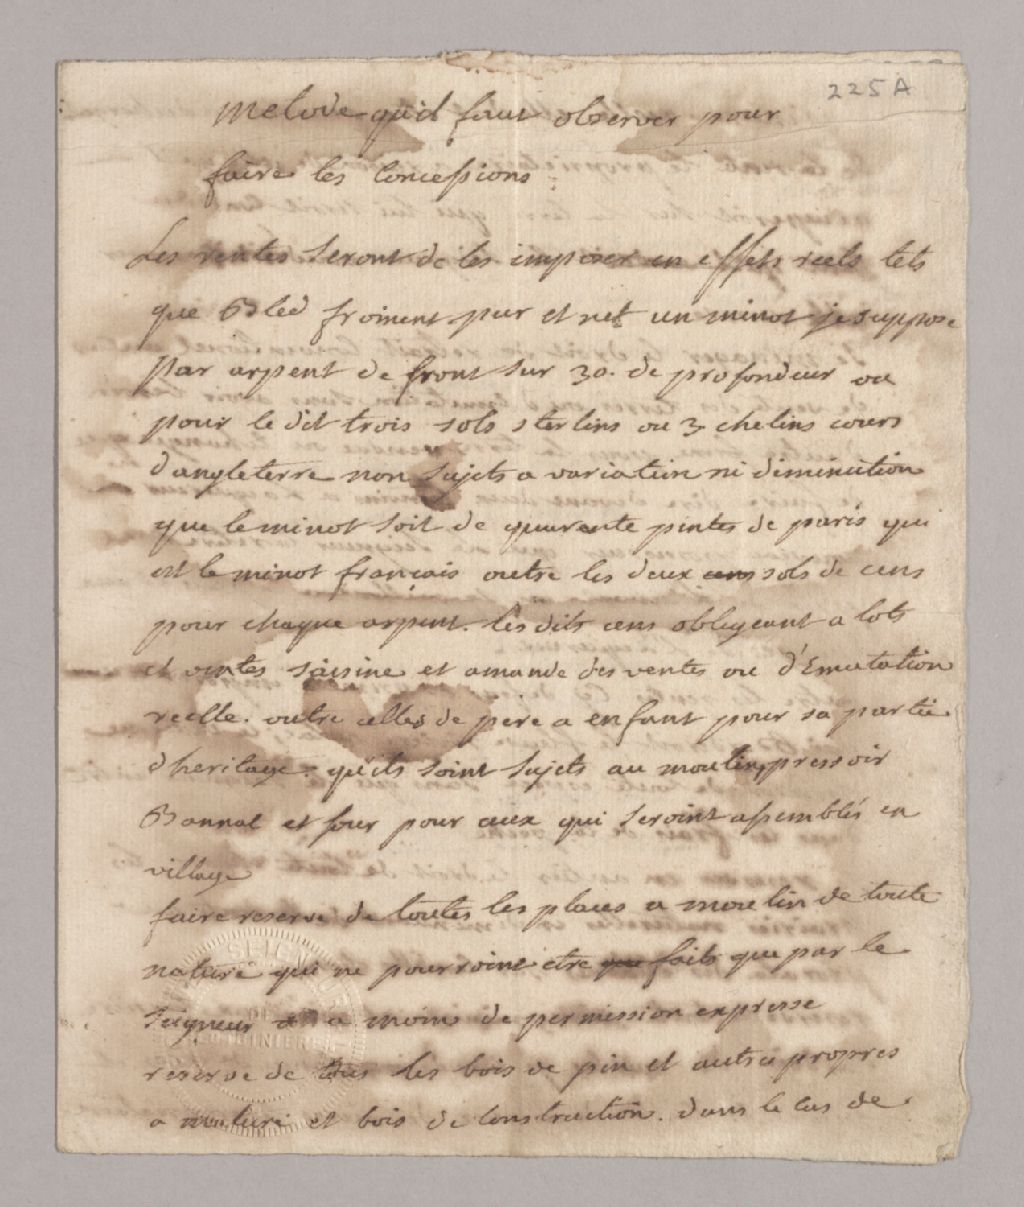 225A
Melode quil faut observer pour
faire les Concessions
Les rentes seront de les imposer en effets reels tels
que Bled froment pur et net un minot je suppose
par arpent de front sur 30. de profondeur ou
pour le dit trois sols sterlins ou 3 chelins cours
d'angleterre non sujets a variation ni diminution
que le minot soit de quarente pintes de paris qui
est le minot français outre les deux cens sols de cens
pour chaque arpent. les dits cens obligeant a lots
et ventes saisine et amande des ventes ou d'Emutation
reelle. outre celles de pere a enfant pour sa partie
d'heritage. qu'ils soint sujets au moulin, pressoir
Bannal et four pour ceux qui seroint assemblés en
village
faire reserve de toutes les places a moulin de toute
nature qui ne pourroint etre que faits que par le
Seigneur a moins de permission expresse
reserve de tous les bois de pin et autre propres
a mature et bois de Construction. dans le Cas de
SEIGNEURI